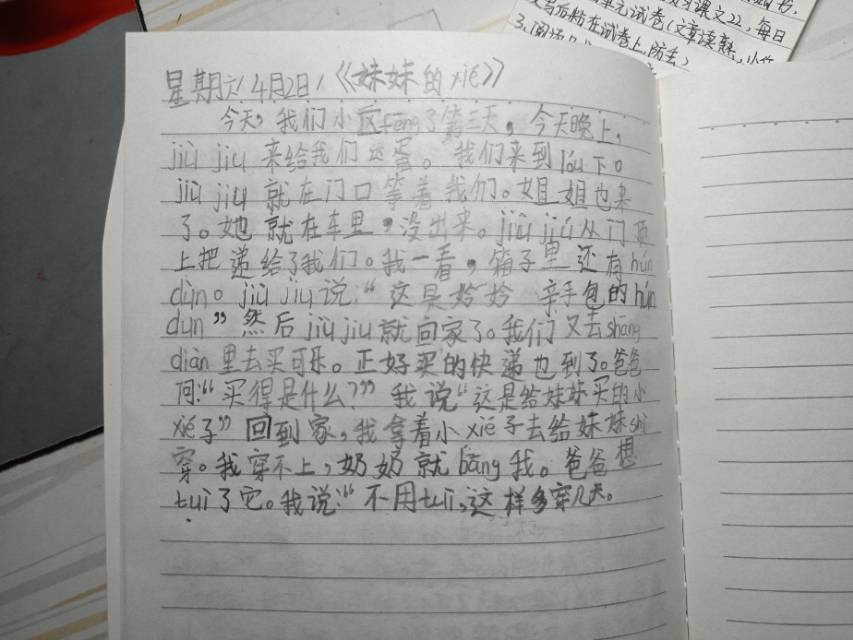 课文22,每日
单元试卷(文章读熟,
写后粘在试卷上,防丢)
星期六 4月2日 《妹妹的xié》
今天,我们小区fēng了第三天,今天晚上,
jiù jiu 来给我们送蛋。我们来到lóu下。
jiù jiu 就在门口等着我们。姐姐也来
了。她就在车里,没出来。jiù jiu从门顶
上把递给了我们。我一看,箱子里还有hún
dùn。jiù jiu说:“这是姈姈亲手包的hún
dun”然后jiù jiu就回家了。我们又去shāng
diàn里去买可乐。正好买的快递也到了。爸爸
问:“买得是什么?”我说“这是给妹妹买的小
xié子”回到家,我拿着小xié子去给妹妹shì
穿。我穿不上,奶奶就bāng我。爸爸想
tuì了它。我说:“不用tuì,这样多穿几天。